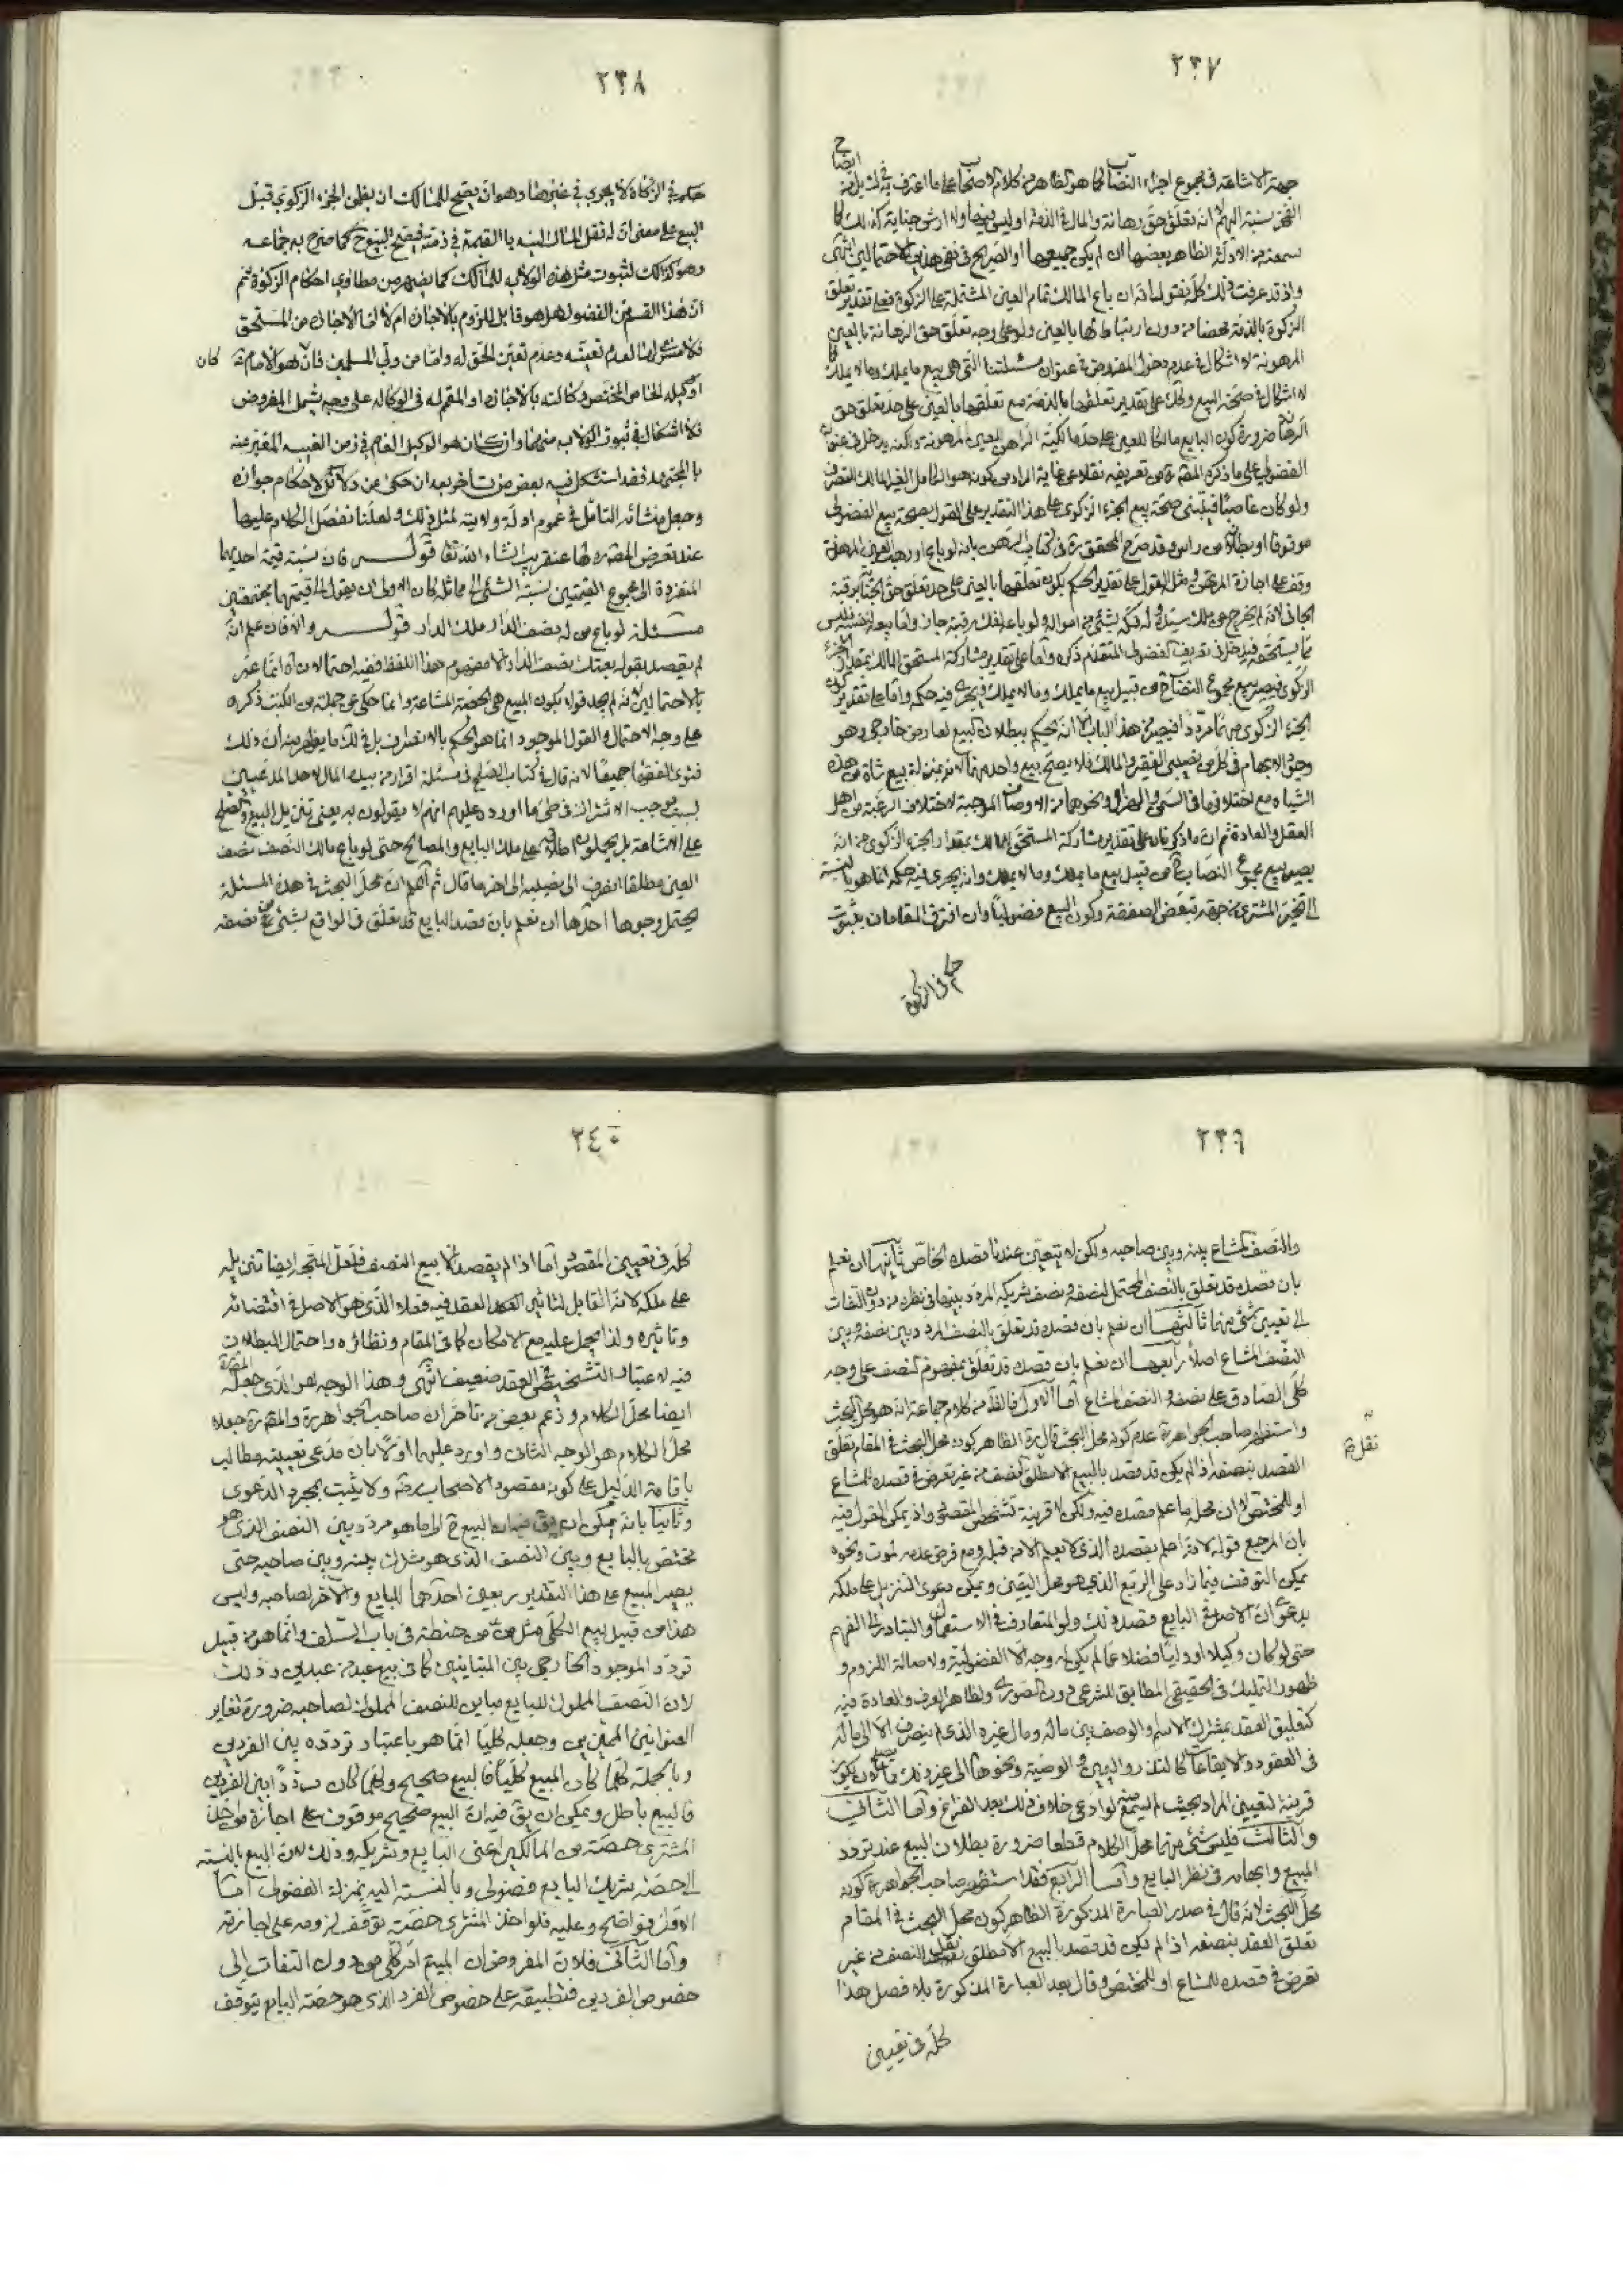 ٢٣٧
ايضاح
جهة الاشاعة فى مجموع اجزاء النصاب كما هو الظاهر من كلام الاصحاب على ما اعترف به فى
الفخر نسبة اليهم لا انه تعلق حق رهانة والمال فى الذمة او ليس رهنا ولا ارش جناية كذلك كما
سمعته من الادلة الظاهر بعضها ان لم يكن جميعها او الصريح فى نفى هذين الاحتمالين انتهى
واذ قد عرفت ذلك كله نقول انه ان باع المالك تمام العين المشتملة على الزكوة فعلى تقدير تعلق
الزكوة بالذمة محضا من دون ارتباطها بالعين ولو على وجه تعلق حق الرهانة بالعين
المرهونة لا اشكال فى عدم دخول المفروض فى عنوان مسئلتنا التى هى بيع ما يملك وما لا يملك
لا اشكال فى صحة البيع وكذلك على تقدير تعلقها بالذمة مع تعلقها بالعين على حد تعلق حق
الرهانة ضرورة كون البايع مالكا للعين على حد مالكية الراهن للعين المرهونة ولكنه يدخل فى عنوان
الفضولى على ما ذكره المقرر من تعريفه نقلا عن غاية المراد من كونه هو الكامل الغير المالك للتصرف
ولو كان غاصبا فيبتنى صحة بيع الجزء الزكوى على هذا التقدير على القول بصحة بيع الفضولى
موقوفا او بطلانه من راس وقد صرح المحقق ره فى كتاب الرهن بانه لو باع او رهن العين المرهونة
وقف على اجازة المرتهن ومثله القول على تقدير الحكم بكون تعلقها بالعين على حد تعلق حق الجناية برقبة
الجانى لانه لم يخرج عن ملك سيده وله فكه بشئ من امواله ولو باعه لفك رقبته جاز واما بيعه
مما يستحقه فيدخل فى تعريف الفضولى المتقدم ذكره واما على تقدير مشاركة المستحق المالك بمقدار الجزء
الزكوى فيصير بيع مجموع النصاب من قبيل بيع ما يملك وما لا يملك ويجرى فيه حكمه واما على تقدير كون
الجزء الزكوى مبهما مرددا فيخرج من هذا الباب الا انه يحكم ببطلان البيع لعارض خارجى وهو
وجود الابهام فى كل من نصيبى الفقير والمالك فلا يصح بيع واحد منهما لانه بمنزلة بيع شاة من هذه
الشياه مع اختلافها فى السمن والهزال ونحوهما من الاوصاف الموجبة لاختلاف الرغبة من اهل
العقل والعادة ثم ان ما ذكرناه على تقدير مشاركة المستحق للمالك بمقدار الجزء الزكوى من انه
يصير بيع مجموع النصاب من قبيل بيع ما يملك وما لا يملك وانه يجرى فيه حكمه انما هو بالنسبة
الى تخيير المشترى من جهة تبعض الصفقة وكون البيع فضوليا وان افترق المقامان بثبوت
حكم فى الزكوة
٢٣٨
حكم فى الزكاة لا يجرى فى غيرها وهو ان يصح للمالك ان يعطى الجزء الزكوى قبل
البيع على معنى ان له نقل المال اليه بالقيمة فى ذمته فيصح البيع كما صرح به جماعة
وهو كذلك لثبوت مثل هذه الولاية للمالك كما يفهم من مطاوى احكام الزكوة ثم
ان هذا القسم من الفضولى هل هو قابل للزوم بالاجازة ام لا اما الاجازة من المستحق
فلا اشكال لعدم تعينه وعدم تعين الحق له واما من ولى المسلمين فان كان هو الامام ع
او وكيله الخاص المختص وكالته بالاجازة او المعممة فى الوكالة على وجه يشمل المفروض
فلا اشكال فى ثبوت الولاية منهما وان كان هو الوكيل العام فى زمن الغيبة المعبر عنه
بالمجتهد فقد استشكل فيه بعض من تاخر بعد ان حكى عن دلائل الاحكام جوازه
وجعل منشائه التامل فى عموم ادلة ولايته لمثل ذلك ولعلنا نفصل الكلام عليها
عند تعرض المصنف ره لها عنقريب انشاء الله تعالى قوله فان نسبة قيمة احديهما
المنفردة الى مجموع القيمتين نسبة الشئ الى مماثله كان الاولى ان يقول الى قيمتهما مجتمعتين
مسئلة لو باع من له نصف الدار ملك الدار قوله والا فان علم انه
لم يقصد بقوله بعتك نصف الدار الا مفهوم هذا اللفظ ففيه احتمالان اه انما عبر
بالاحتمالين لانه لم يجد قولا بكون المبيع هى الحصة المشاعة وانما حكى عن جملة من الكتب ذكره
على وجه الاحتمال والقول الموجود انما هو الحكم بالانصراف بل فى لك ما يظهر منه ان ذلك
فتوى الفقهاء جميعا لانه قال فى كتاب الصلح فى مسئلة اقرار من بيده المال لاحد المدعيين
بسبب موجب الاشتراك فى طى ما اورد عليهم انهم لا يقولون به يعنى تنزيل البيع والصلح
على الاشاعة بل يحملون اطلاقه على ملك البايع والمصالح حتى لو باع مالك النصف نصف
العين مطلقا انصرف الى نصيبه الى اخر ما قال ثم اعلم ان محل البحث فى هذه المسئلة
يحتمل وجوها احدها ان نعلم بان قصد البايع قد تعلق فى الواقع بشئ معين من نصفه
٢٣٩
والنصف المشاع بينه وبين صاحبه ولكن لا يتعين عندنا قصده الخاص ثانيها ان نعلم
بان قصده قد تعلق بالنصف المحتمل لنصفه ونصف شريكه المردد بينهما فى نظره من دون التفات
الى تعيين شئ منهما ثالثها ان نعلم بان قصده قد تعلق بالنصف المردد بين نصفه وبين
النصف المشاع اصلا رابعها ان نعلم بان قصده قد تعلق بمفهوم النصف على وجه
كلى الصادق على نصفه والنصف المشاع اما الاول فالظاهر من كلام جماعة انه هو محل البحث
واستظهر صاحب الجواهر ره عدم كونه محل البحث قال ره الظاهر كون محل البحث فى المقام تعلق
القصد بنصفه اذا لم يكن قد قصد بالبيع الا مطلق النصف من غير تعرض فى قصده للمشاع
او للمختص لا ان محله ما علم قصده فيه ولكن لا قرينة تشخص المقصود اذ يمكن القول فيه
بان المرجع قوله لانه اعلم بقصده الذى لا يعلم الا من قبله ومع فرض عدمه لموت ونحوه
يمكن التوقف فيما زاد على الربع الذى هو محل اليقين ويمكن دعوى التنزيل على ملكه
بدعوى ان الاصل فى البايع قصده ذلك ولو المتعارف فى الاستعمال والتبادر الى الفهم
حتى لو كان وكيلا او وليا فضلا عما لم يكن له وجه الا الفضولية ولاصالة اللزوم و
ظهور التمليك فى الحقيقى المطابق للشرعى دون الصورى ولظاهر العرف والعادة فيه
كتعليق العقد بمشترك الاسم والوصف بين ماله ومال غيره الذى لم ينصرف الا الى ماله
فى العقود والايقاعات كالنذر واليمين والوصية ونحوها الى غير ذلك مما يصلح ان يكون
قرينة لتعيين المراد بحيث لم يسمع منه لو ادعى خلاف ذلك بعد الفراغ واما الثانى
والثالث فليس شئ منهما محل الكلام قطعا ضرورة بطلان البيع عند تردد
المبيع وابهامه فى نظر البايع واما الرابع فقد استظهر صاحب الجواهر ره كونه
محل البحث لانه قال فى صدر العبارة المذكورة الظاهر كون محل البحث فى المقام
تعلق العقد بنصفه اذا لم يكن قد قصد بالبيع الا مطلق النصف من غير
تعرض فى قصده للمشاع او للمختص وقال بعد العبارة المذكورة بلا فصل هذا
كله فى تعيين
٢٤٠
كله فى تعيين المقصود اما اذا لم يقصد الا بيع النصف فلعل المتجه ايضا تنزيله
على ملكه لانه القابل لتاثير العقد فيه فعلا الذى هو الاصل فى اقتضائه
وتاثيره ولذا يحمل عليه مع الامكان كما فى المقام ونظائره واحتمال البطلان
فيه لاعتبار التشخيص فى العقد ضعيف انتهى وهذا الوجه هو الذى جعله المصنف ره
ايضا محل الكلام وزعم بعض من تاخر ان صاحب الجواهر ره والمصنف ره جعلا
محل الكلام هو الوجه الثانى واورد عليهما اولا بان مدعى تعيينه مطالب
باقامة الدليل على كونه مقصود الاصحاب رضه ولا يثبت بمجرد الدعوى
وثانيا بانه يمكن ان يق ببطلان البيع ح لما هو مردد بين النصف الذى هو
مختص بالبايع وبين النصف الذى هو مشترك بينه وبين صاحبه حتى
يصير المبيع على هذا التقدير ربعين احدهما للبايع والاخر لصاحبه وليس
هذا من قبيل بيع الكلى مثل من من حنطة فى باب السلف وانما هو من قبيل
تردد الموجود الخارجى بين المتباينين كما فى بيع عبد من عبدين وذلك
لان النصف المملوك للبايع مباين للنصف المملوك لصاحبه ضرورة تغاير
العنوانين المميزين وجعله كليا انما هو باعتبار تردده بين الفردين
وبالجملة كلما كان المبيع كليا فالبيع صحيح وكلما كان مرددا بين الفردين
فالبيع باطل ويمكن ان يق فيه ان البيع صحيح موقوف على اجازة من اخذ
المشترى حصته من المالكين اعنى البايع وشريكه وذلك لان البيع بالنسبة
الى حصة شريك البايع فضولى وبالنسبة اليه بمنزلة الفضولى اما
الاول فواضح وعليه فلو اخذ المشترى حصته توقف لزومه على اجازته
واما الثانى فلان المفروض ان المبيع امر كلى من دون التفات الى
خصوص الفردين فتطبيقه على خصوص الفرد الذى هو حصة البايع يتوقف